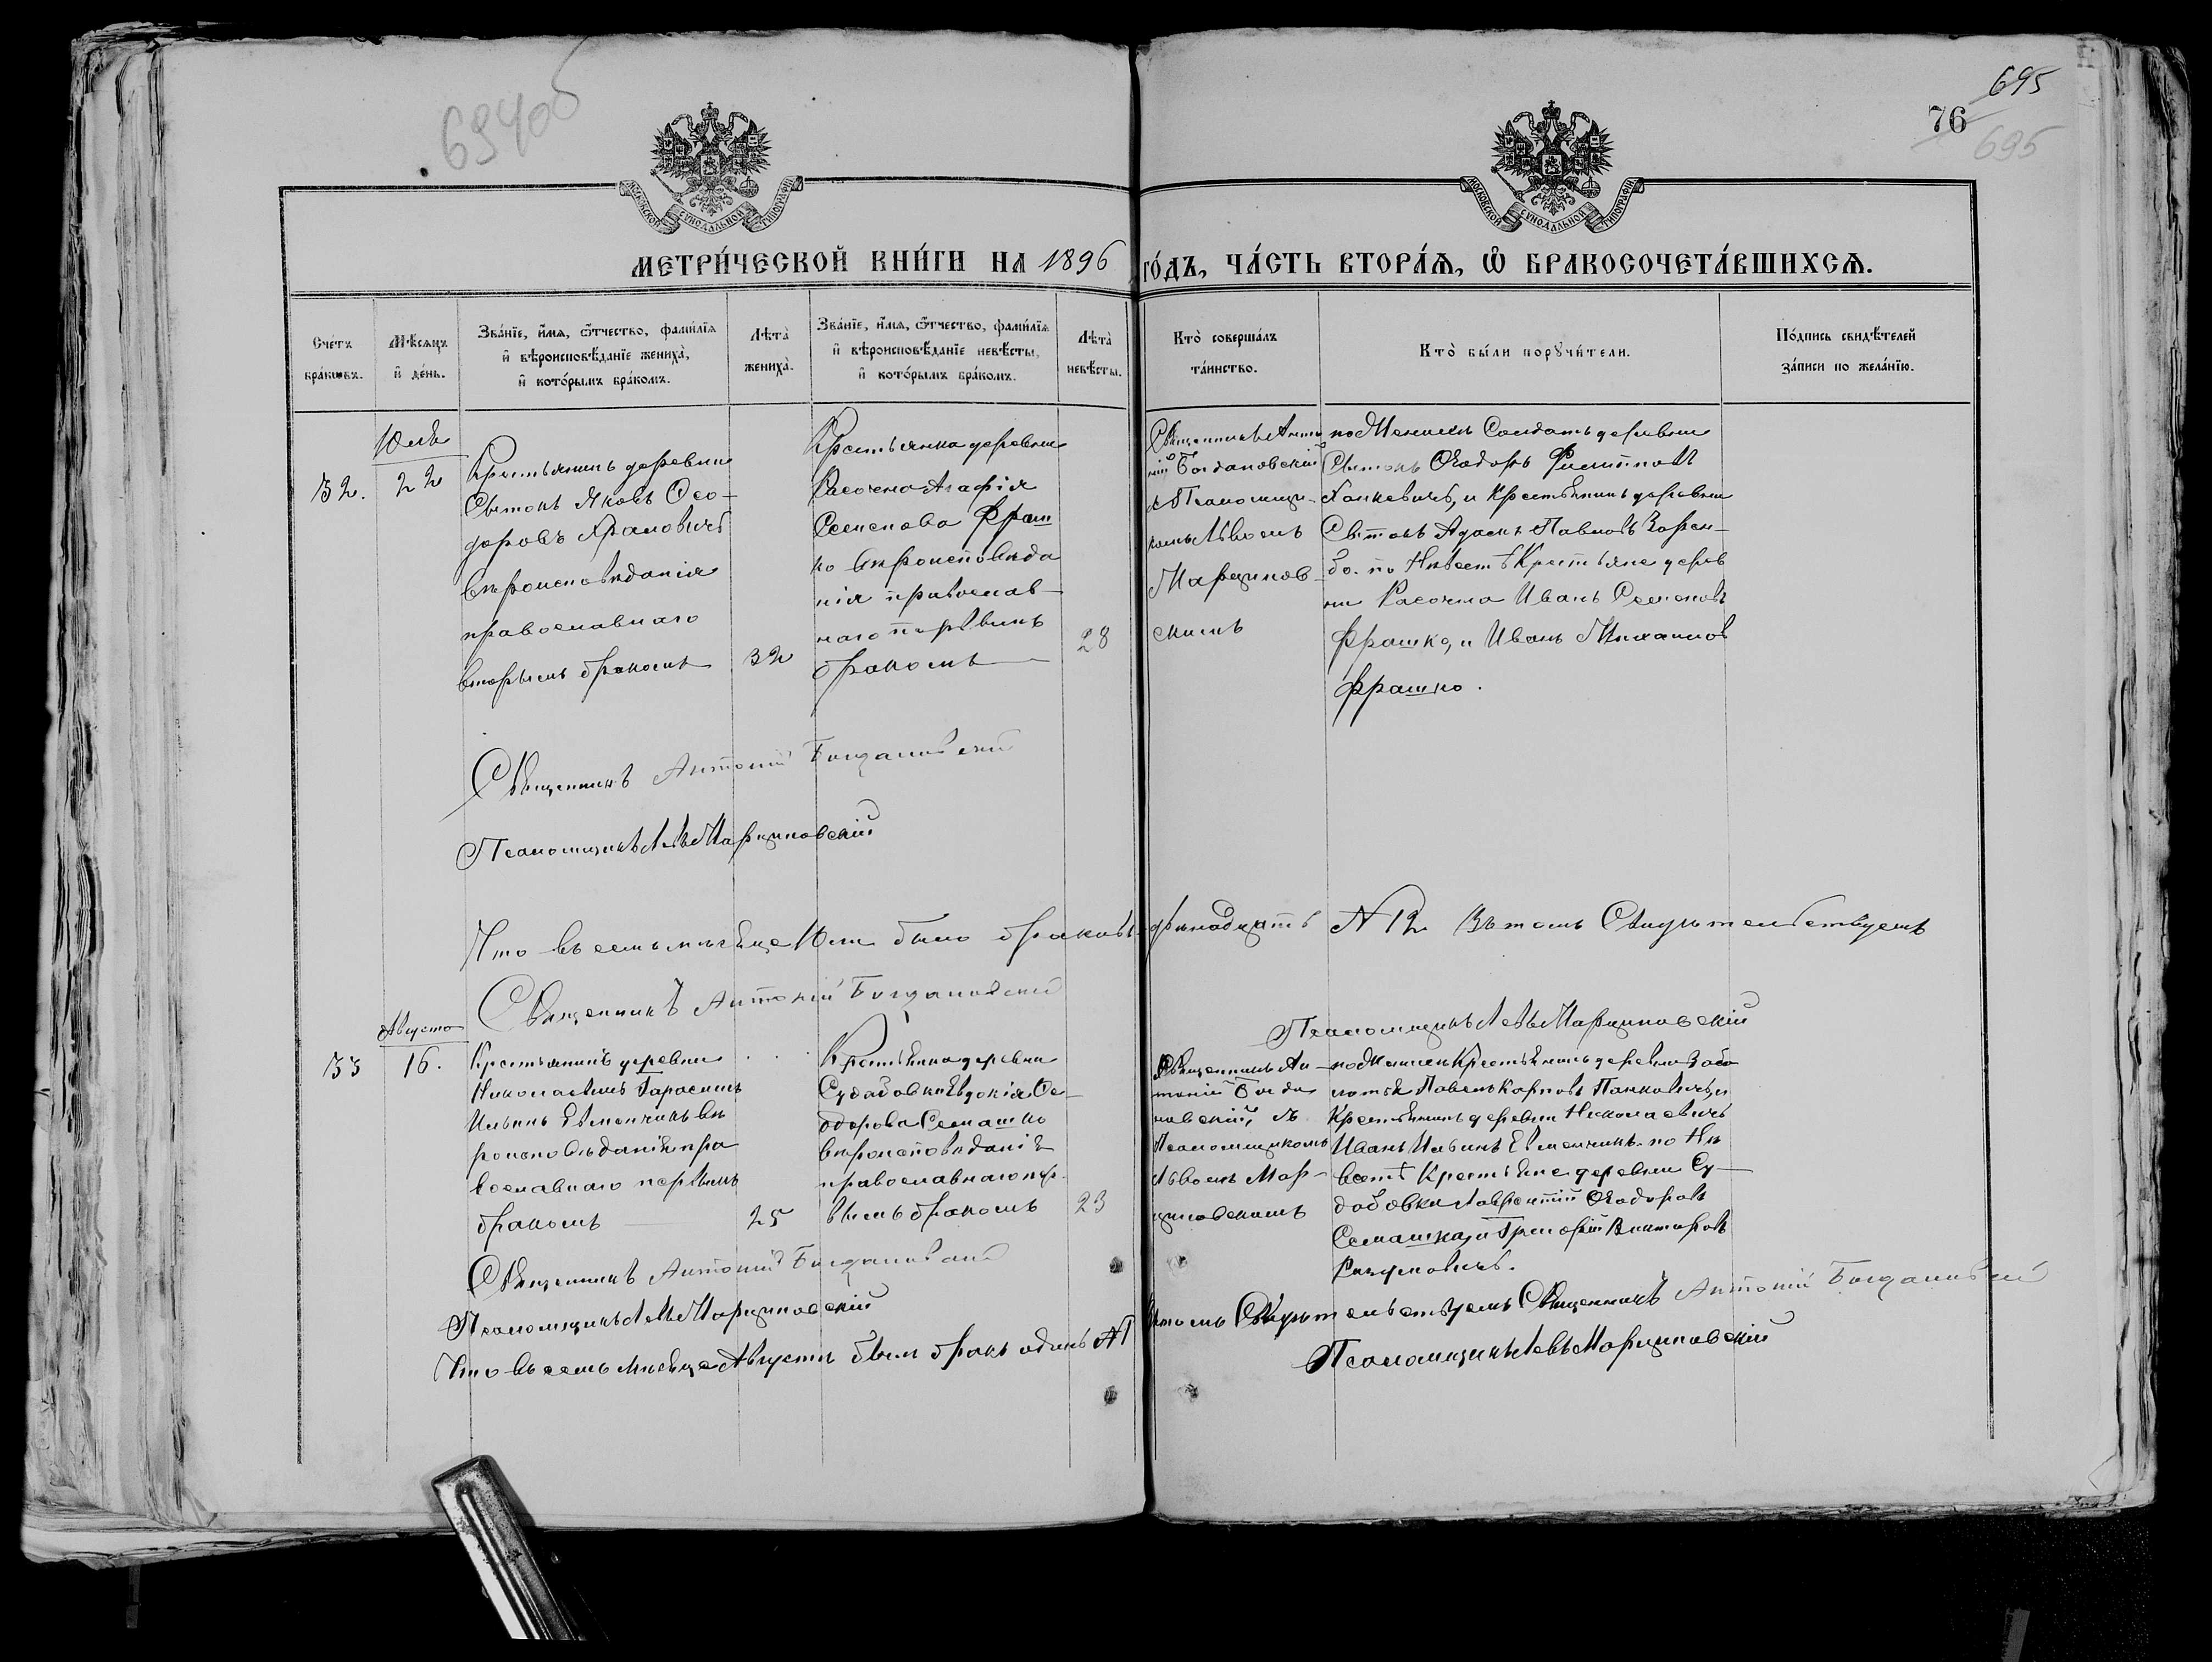 694об
695
76
695
МОСКОВСКОЙ СУНОДАЛЬНОЙ ТИПОГРАФІИ
МОСКОВСКОЙ СУНОДАЛЬНОЙ ТИПОГРАФІИ
МЕТРИ́ЧЕСКОЙ КНИ́ГИ НА 1896 ГО́ДЪ, ЧА́СТЬ ВТОРА́Я, Ѽ БРАКОСОЧЕТА́ВШИХСЯ.
Сче́тъ
бра́ковъ.
Мѣ́сяцъ
и҆ де́нь.
Зва́нїе, и҆́мя, ѻ҆́тчество, фами́лїя
и҆ вѣроисповѣ́данїе жениха̀,
и҆ кото́рымъ бра́комъ.
Лѣта̀
жениха̀.
Зва́нїе, и҆́мя, ѻ҆́тчество, фами́лїя
и҆ вѣроисповѣ́данїе невѣ́сты,
и҆ кото́рымъ бра́комъ.
Лѣта̀
невѣ́сты.
Кто̀ соверша́лъ
та́инство.
Кто̀ бы́ли порꙋчи́тели.
По́дпись свидѣ́телей
за́писи по жела́нїю.
Юль
32.
22
Крестьянинъ деревни
Свтокъ Яковъ Ѳео-
доровъ Храмовичъ
вѣроисповѣданія
православнаго
вторымъ бракомъ
32
Крестьянка деревни
Расочно Агафія
Семенова Фраш
ко вѣроисповѣда
нія православ-
наго первымъ
бракомъ
28
Священникъ Анто
ній Богдановскій
съ Псаломщи-
комъ Львомъ
Марциновс-
скимъ
по Женихѣ Солдатъ деревни
Свтокъ Ѳеодоръ Филиповъ
Ханкевичъ, и Крестьянинъ деревни
Свтокъ Адамъ Павловъ Зарем-
бо. по Невестѣ Крестьяне дерев
ни Расочно Иванъ Семеновъ
Фрашко, и Иванъ Михаиловъ
Фрашко.
Священникъ Антоній Богдановскій
Псаломщикъ Левъ Марциновскій
Что въ семъ мѣсяце Юли было браковъ двѣнадцать № 12 въ томъ Свидѣтельствуемъ
Священникъ Антоній Богдановскій
Псаломщикъ Левъ Марциновскій
Августъ
33
16.
Крестьянинъ деревни
Николаевичъ Гарасимъ
Ильинъ Евменчикъ вѣ
роисповѣданія пра
вославнаго первымъ
бракомъ
25
Крестьянка деревни
Судабовки Евдокія Ѳе-
одорова Семашко
вѣроисповѣданіе
православнаго пер-
вымъ бракомъ
23
Священникъ Ан-
тоній Богда
новскій, съ
Псаломщикомъ
Львомъ Мар-
циновскимъ
по Женихѣ Крестьянинъ деревни Забо
лотья Павелъ Карповъ Панковичъ, и
Крестьянинъ деревни Николаевичъ
Иванъ Ильинъ Евменчикъ. по Не
вестѣ Крестьяне деревни Су-
дабовки Лаврентій Ѳеодоровъ
Семашко, и Григорій Викторовъ
Священникъ Антоній Богдановскій
Псаломщикъ Левъ Марциновскій
Что въ семъ мѣсяце Августѣ былъ бракъ одинъ №1 въ томъ Свидѣтельствуемъ Священникъ Антоній Богдановскій
Псаломщикъ Левъ Марциновскій